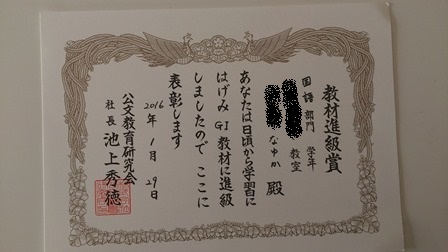 教材進級賞
国語部門 学年
教室
なゆか 殿
あなたは日頃から学習に
はげみ GI 教材に進級
しましたので ここに
表彰します
2016年 1月 29日
公文教育研究会
社長 池上秀徳